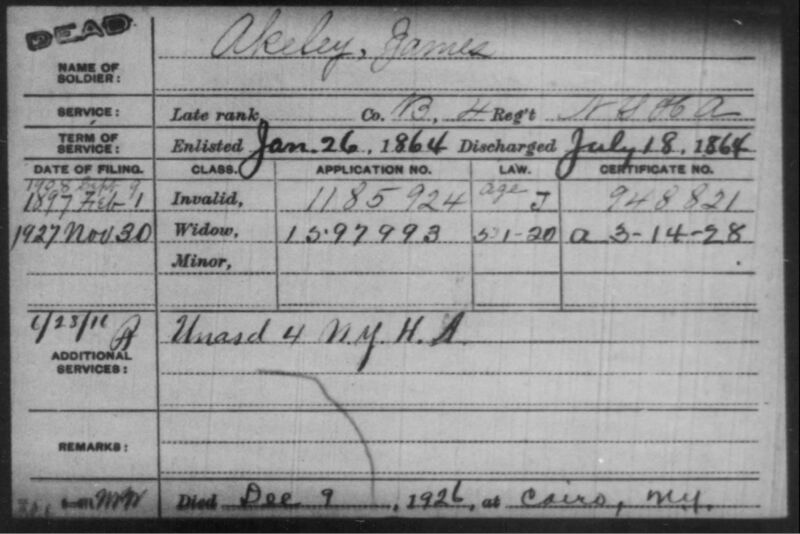 DEAD
Akeley, James
NAME OF SOLDIER:
SERVICE: Late rank, Co. B, 4 Reg't N Y H A
TERM OF SERVICE: Enlisted Jan. 26, 1864 Discharged July 18, 1864
DATE OF FILING. CLASS. APPLICATION NO. LAW. CERTIFICATE NO.
1908 Sept 9
1897 Feb 1 Invalid, 1185924 age J 948821
1927 Nov 30 Widow, 1597993 5-1-20 a 3-14-28
Minor,
Unasd 4 N.Y. H. A.
ADDITIONAL SERVICES:
REMARKS:
Died Dec 9, 1926, at Cairo, N.Y.